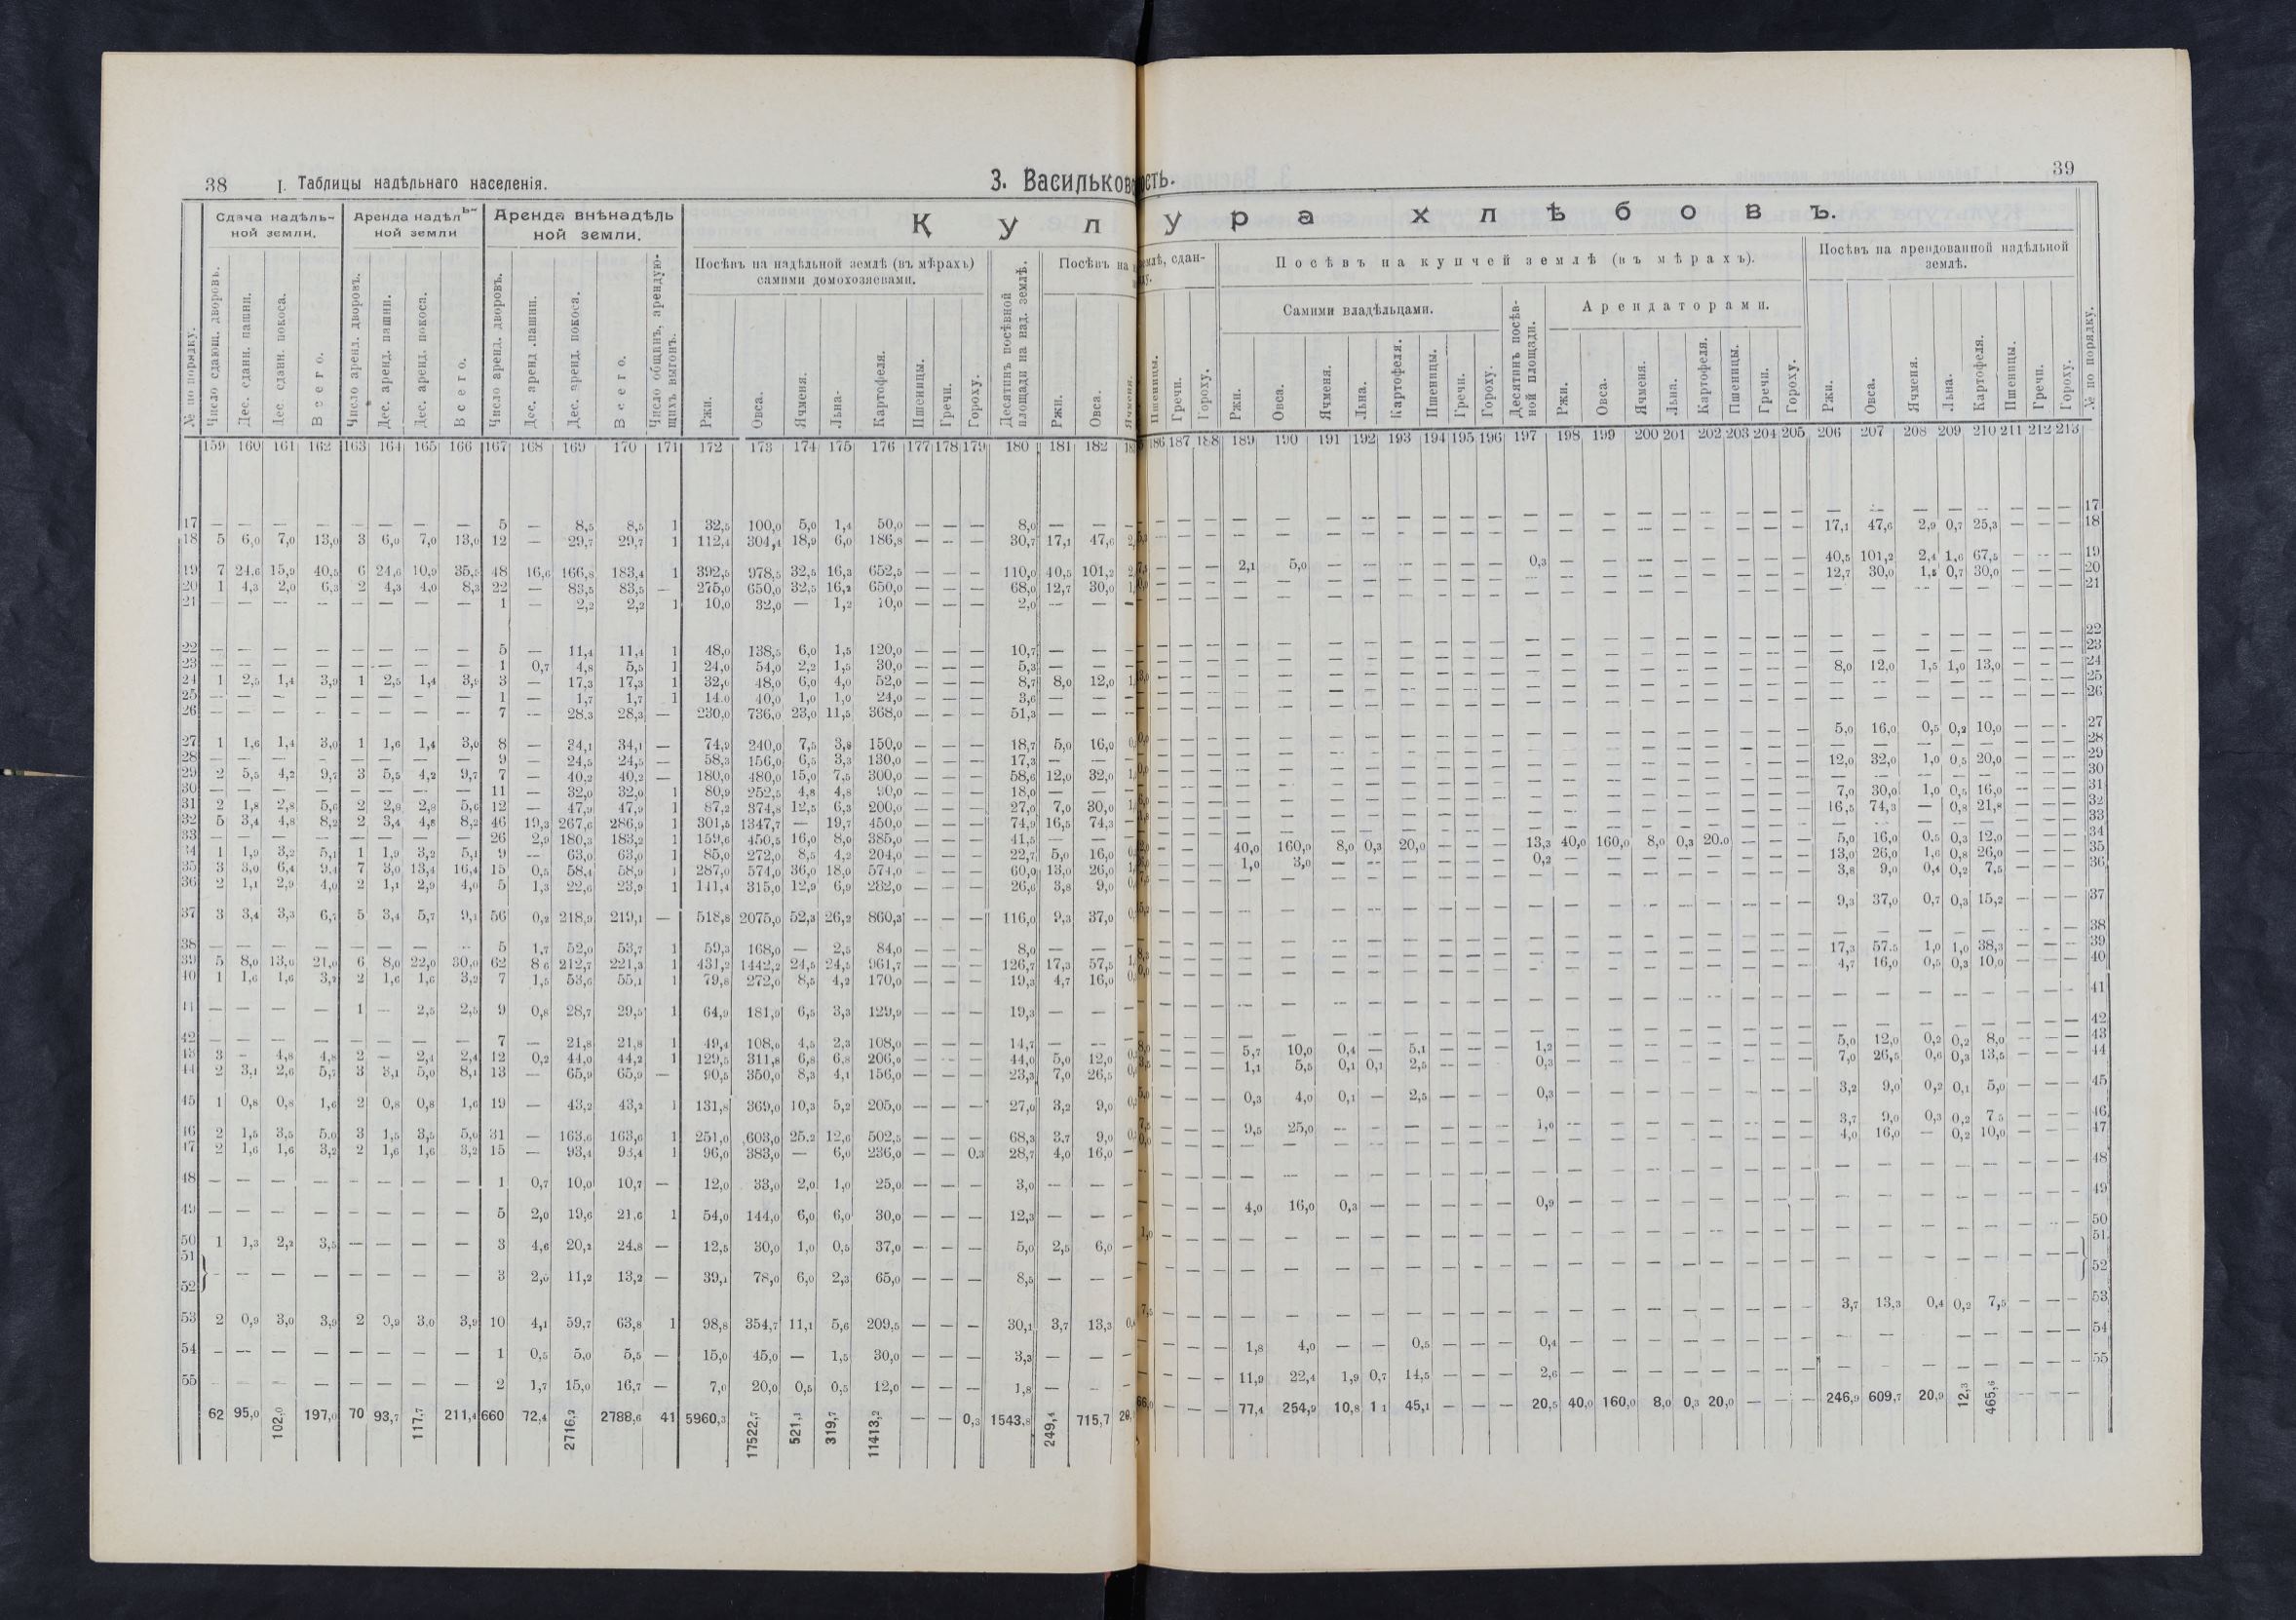 38 I. Таблицы надѣльнаго населенія.
3. Васильков
ость.
39
Сдача надѣль-
ной земли.
Аренда надѣль-
ной земли
Аренда внѣнадѣль
ной земли.
К у л
у р а х л ѣ б о в ъ.
Посѣвъ на надѣльной землѣ (въ мѣрахъ)
самими домохозяевами.
Посѣвъ на
землѣ, сдан-
Посѣвъ на купчей землѣ (въ мѣрахъ).
Посѣвъ на арендованной надѣльной
землѣ.
Самими владѣльцами.
Арендаторами.
№ по порядку.
Число сдающ. дворовъ.
Дес. сданн. пашни.
Дес. сданн. покоса.
Всего.
Число аренд. дворовъ.
Дес. аренд. пашни.
Дес. аренд. покоса.
Всего.
Число аренд. дворовъ.
Дес. аренд. пашни.
Дес. аренд. покоса.
Всего.
Число общинъ, арендую-
щихъ выгонъ.
Ржи.
Овса.
Ячменя.
Льна-
Картофеля.
Пшеницы.
Гречи.
Гороху.
Десятинъ посѣвной
площади на над. землѣ.
Ржи.
Овса.
Ячменя.
Пшеницы.
Гречи.
Гороху.
Ржи.
Овса.
Ячменя.
Льна.
Картофеля.
Пшеницы.
Гречи.
Гороху.
Десятинъ посѣв-
ной площади.
Ржи.
Овса.
Ячменя.
Льна.
Картофеля.
Пшеницы.
Гречи.
Гороху.
Ржи.
Овса.
Ячменя.
Льна.
Картофеля.
Пшеницы.
Гречи.
Гороху.
№ по порядку.
159 160 161 162 163 164 165 166 167 168 169 170 171 172 173 174 175 176 177 178 179 180 181 182
186 187 188 189 190 191 192 193 194 195 196 197 198 199 200 201 202 203 204 205 206 207 208 209 210 211 212 213
17 — — — — — — — — 5 — 8,5 8,5 1 32,5 100,0 5,0 1,4 50,0 — — — 8,0 — — —
18 5 6,0 7,0 13,0 3 6,0 7,0 13,0 12 — 29,7 29,7 1 112,4 304,4 18,9 6,0 186,8 — — — 30,7 17,1 47,6
17,1 47,6 2,9 0,7 25,3 — — — 18
19 7 24,6 15,9 40,5 6 24,6 10,9 35,5 48 16,6 166,8 183,4 1 392,5 978,5 32,5 16,3 652,5 — — — 110,0 40,5 101,2
2,1 5,0 — — — — — — 0,3 — — — — — — — — 40,5 101,2 2,4 1,6 67,5 — — — 19
20 1 4,3 2,0 6,3 2 4,3 4,0 8,3 22 — 83,5 83,5 — 275,0 650,0 32,5 16,2 650,0 — — — 68,0 12,7 30,0
12,7 30,0 1,5 0,7 30,0 — — — 20
21 — — — — — — — — 1 — 2,2 2,2 1 10,0 32,0 — 1,2 10,0 — — — 2,0 — — —
22 — — — — — — — — 5 — 11,4 11,4 1 48,0 138,5 6,0 1,5 120,0 — — — 10,7 — — —
23 — — — — — — — — 1 0,7 4,8 5,5 1 24,0 54,0 2,2 1,5 30,0 — — — 5,3 — — —
24 1 2,5 1,4 3,9 1 2,5 1,4 3,9 3 — 17,3 17,3 1 32,0 48,0 6,0 4,0 52,0 — — — 8,7 8,0 12,0
8,0 12,0 1,5 1,0 13,0 — — — 24
25 — — — — — — — — 1 — 1,7 1,7 1 14,0 40,0 1,0 1,0 24,0 — — — 3,6 — — —
26 — — — — — — — — 7 — 28,3 28,3 — 230,0 736,0 23,0 11,5 368,0 — — — 51,3 — — —
27 1 1,6 1,4 3,0 1 1,6 1,4 3,0 8 — 34,1 34,1 — 74,9 240,0 7,5 3,8 150,0 — — — 18,7 5,0 16,0
5,0 16,0 0,5 0,2 10,0 — — — 27
28 — — — — — — — — 9 — 24,5 24,5 — 58,3 156,0 6,5 3,3 130,0 — — — 17,3 — — —
29 2 5,5 4,2 9,7 3 5,5 4,2 9,7 7 — 40,2 40,2 — 180,0 480,0 15,0 7,5 300,0 — — — 58,6 12,0 32,0
12,0 32,0 1,0 0,5 20,0 — — — 29
30 — — — — — — — — 11 — 32,0 32,0 1 80,9 252,5 4,8 4,8 90,0 — — — 18,0 — — —
31 2 1,8 2,8 5,6 2 2,8 2,8 5,6 12 — 47,9 47,9 1 87,2 374,8 12,5 6,3 200,0 — — — 27,0 7,0 30,0
7,0 30,0 1,0 0,5 16,0 — — — 31
32 5 3,4 4,8 8,2 2 3,4 4,8 8,2 46 19,3 267,6 286,9 1 301,5 1347,7 — 19,7 450,0 — — — 74,9 16,5 74,3 —
16,5 74,3 — 0,8 21,8 — — — 32
33 — — — — — — — — 26 2,9 180,3 183,2 1 159,6 450,5 16,0 8,0 385,0 — — — 41,5 — — —
34 1 1,9 3,2 5,1 1 1,9 3,2 5,1 9 — 63,0 63,0 1 85,0 272,0 8,5 4,2 204,0 — — — 22,7 5,0 16,0
40,0 160,0 8,0 0,3 20,0 — — — 13,3 40,0 160,0 8,0 0,3 20.0 — — — 5,0 16,0 0,5 0,3 12,0 — — — 34
35 3 3,0 6,4 9,4 7 3,0 13,4 16,4 15 0,5 58,4 58,9 1 287,0 574,0 36,0 18,0 574,0 — — — 60,0 13,0 26,0
1,0 3,0 — — — — — — 0,2 — — — — — — — — 13,0 26,0 1,6 0,8 26,0 — — — 35
36 2 1,1 2,9 4,0 2 1,1 2,9 4,0 5 1,3 22,6 23,9 1 141,4 315,0 12,9 6,9 282,0 — — — 26,6 3,8 9,0
3,8 9,0 0,4 0,2 7,5 — — — 36
37 3 3,4 3,3 6,7 5 3,4 5,7 9,1 56 0,2 218,9 219,1 — 518,8 2075,0 52,3 26,2 860,3 — — — 116,0 9,3 37,0
9,3 37,0 0,7 0,3 15,2 — — — 37
38 — — — — — — — — 5 1,7 52,0 53,7 1 59,3 168,0 — 2,5 84,0 — — — 8,0 — — —
39 5 8,0 13,0 21,0 6 8,0 22,0 30,0 62 8,6 212,7 221,3 1 431,2 1442,2 24,5 24,5 961,7 — — — 126,7 17,3 57,5
17,3 57.5 1,0 1,0 38,3 — — — 39
40 1 1,6 1,6 3,2 2 1,6 1,6 3,2 7 1,5 53,6 55,1 1 79,8 272,0 8,5 4,2 170,0 — — — 19,3 4,7 16,0
4,7 16,0 0,5 0,3 10,0 — — — 40
41 — — — — 1 — 2,5 2,5 9 0,8 28,7 29,5 1 64,9 181,9 6,5 3,3 129,9 — — — 19,3 — — —
42 — — — — — — — — 7 — 21,8 21,8 1 49,4 108,6 4,5 2,3 108,0 — — — 14,7 — — —
43 3 — 4,8 4,8 2 — 2,4 2,4 12 0,2 44,0 44,2 1 129,5 311,8 6,8 6,8 206,0 — — — 44,0 5,0 12,0
5,7 10,0 0,4 — 5,1 — — — 1,2 — — — — — — — — 5,0 12,0 0,2 0,2 8,0 — — — 43
44 2 3,1 2,6 5,7 3 3,1 5,0 8,1 13 — 65,9 65,9 — 90,5 350,0 8,3 4,1 156,0 — — — 23,3 7,0 26,5
1,1 5,5 0,1 0,1 2,5 — — — 0,3 — — — — — — — — 7,0 26,5 0,6 0,3 13,5 — — — 44
45 1 0,8 0,8 1,6 2 0,8 0,8 1,6 19 — 43,2 43,2 1 131,8 369,0 10,3 5,2 205,0 — — — 27,0 3,2 9,0
0,3 4,0 0,1 — 2,5 — — — 0,3 — — — — — — — — 3,2 9,0 0,2 0,1 5,0 — — — 45
46 2 1,5 3,5 5.0 3 1,5 3,5 5,0 31 — 163,6 163,6 1 251,0 603,0 25.2 12,6 502,5 — — — 68,3 3.7 9,0
9,5 25,0 — — — — — — 1,0 — — — — — — — — 3,7 9,0 0,3 0,2 7.5 — — — 46
47 2 1,6 1,6 3,2 2 1,6 1,6 3,2 15 — 93,4 93,4 1 96,0 383,0 — 6,0 236,0 — — 0.3 28,7 4,0 16,0 —
4,0 16,0 — 0,2 10,0 — — — 47
48 — — — — — — — — 1 0,7 10,0 10,7 — 12,0 33,0 2,0 1,0 25,0 — — — 3,0 — — —
49 — — — — — — — — 5 2,0 19,6 21,6 1 54,0 144,0 6,0 6,0 30,0 — — — 12,3 — — —
4,0 16,0 0,3 — — — — — 0,9 — — — — — — — — — — — — — — — — 49
50 1 1,3 2,2 3,5 — — — — 3 4,6 20,2 24.8 — 12,5 30,0 1,0 0,5 37,0 — — — 5,0 2,5 6,0 —
51
52 } — — — — — — — — 3 2,0 11,2 13,2 — 39,1 78,0 6,0 2,3 65,0 — — — 8,5 — — —
53 2 0,9 3,0 3,9 2 0,9 3,0 3,9 10 4,1 59,7 63,8 1 98,8 354,7 11,1 5,6 209,5 — — — 30,1 3,7 13,3
3,7 13,3 0,4 0,2 7,5 — — — 53
54 — — — — — — — — 1 0,5 5,0 5,5 — 15,0 45,0 — 1,5 30,0 — — — 3,3 — — —
1,8 4,0 — — 0,5 — — — 0,4 — — — — — — — — — — — — — — — — 54
55 — — — — — — — — 2 1,7 15,0 16,7 — 7,0 20,0 0,5 0,5 12,0 — — — 1,8 — — —
11,9 22,4 1,9 0,7 14,5 — — — 2,6 — — — — — — — — — — — — — — — — 55
62 95,0 102,0 197,0 70 93,7 117.7 211,4 660 72,4 2716,2 2788,6 41 5960,3 17522,7 521,1 319,7 11413,2 — — 0,3 1543,8 249,4 715,7
— — 77,4 254,9 10,8 1 1 45,1 — — — 20,5 40,0 160,0 8,0 0,3 20,0 — — — 246,9 609,7 20,9 12,3 465,6 — — —